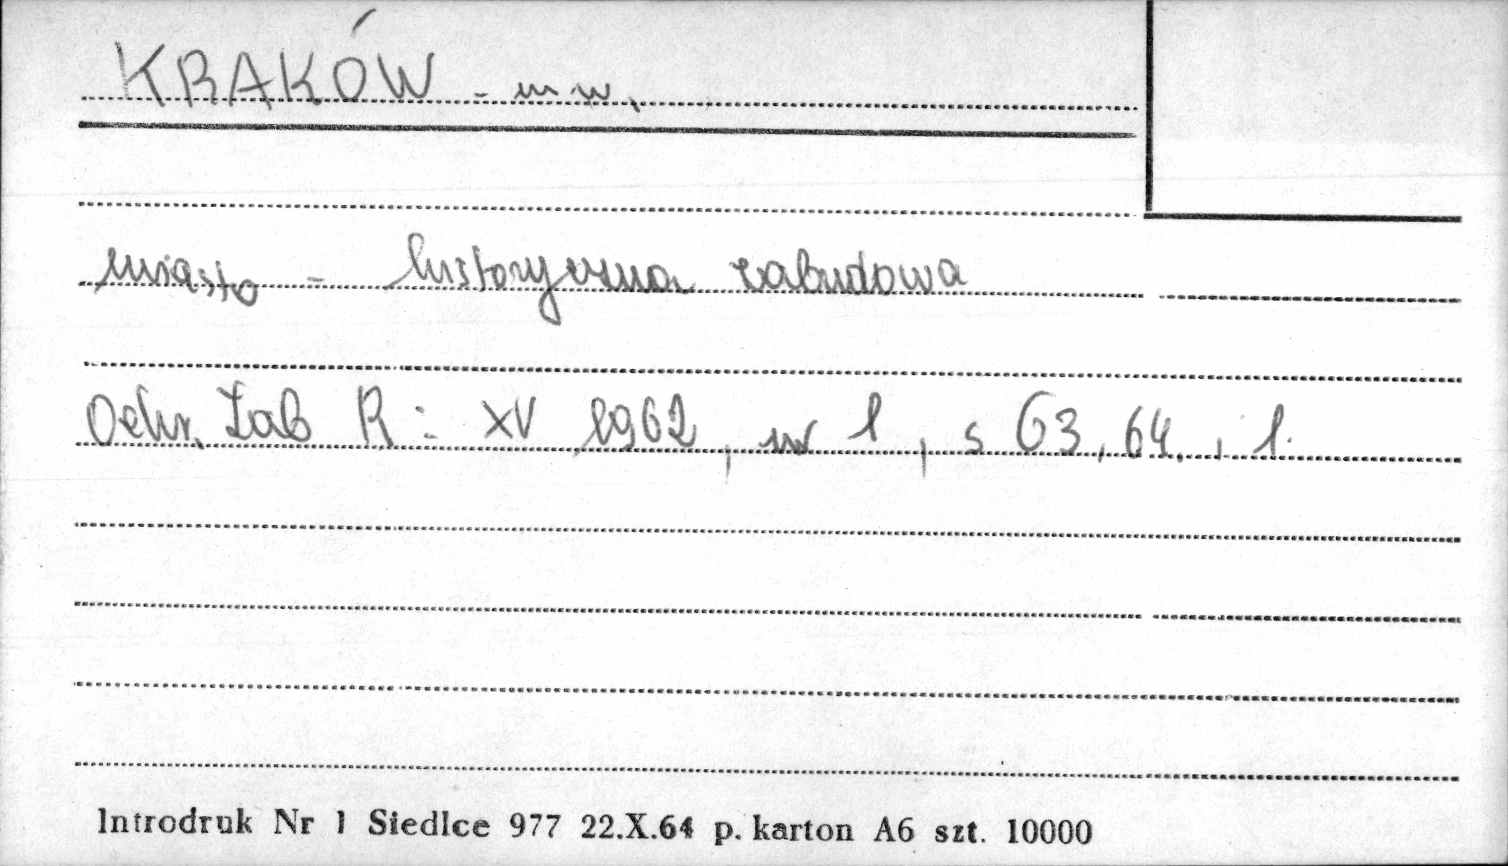 KRAKÓW - m w.
miasto - historyczna zabudowa
Ochr. Zab R: XV 1962, nr 1, s 63, 64., 1.
Introdruk Nr 1 Siedlce 977 22.X.64 p. karton A6 szt. 10000